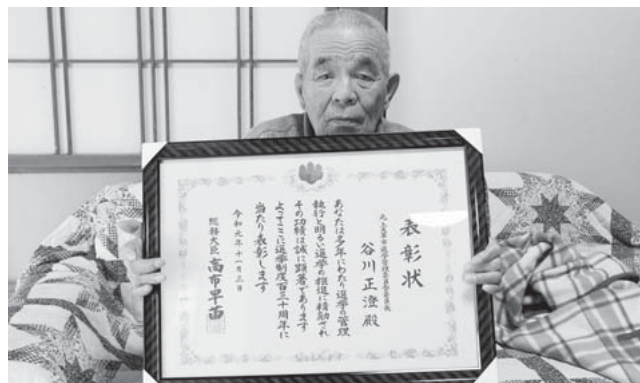 表彰状
選挙管理委員会委員長
谷川正澄殿
あなたは多年にわたり選挙の管理
執行と明るい選挙の推進に精励され
その功績は誠に顕著であります
よってここに選挙制度百三十周年に
当たり表彰します
令和元年十一月三日
総務大臣 高市早苗